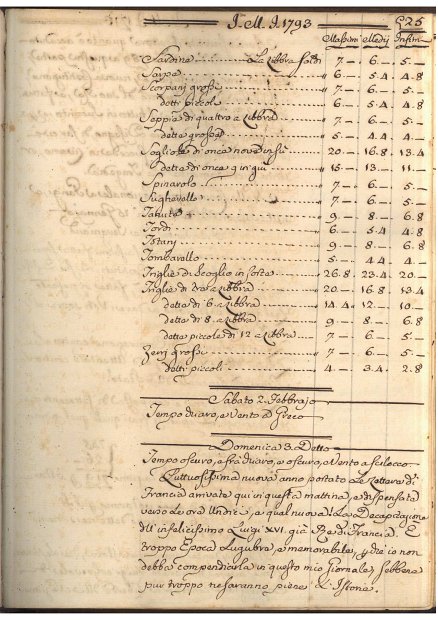 J. M. J. 1793 625
Massimi Medij Infimi
Sardina La libbra soldi 7 – 6 – 5 –
Saipa " 6 – 5.4 4.8
Scorpanj grossi " 7 – 6 – 5 –
detti piccoli " 6 – 5.4 4.8
Seppia di quattro a libbra " 7 – 6 – 5 –
detta grossa " 5 – 4.4 4 –
Sogliole di once nove in sù " 20 – 16.8 13.4
detta di once 9 in giù " 15 – 13 – 11 –
Spinarolo " 7 – 6 – 5 –
Sugharello " 7 – 6 – 5 –
9 – 8 – 6.8
Tordi " 6 – 5.4 4.8
9 – 8 – 6.8
Tombarello 5 – 4.4 4 –
Triglie di Scoglio in sorte " 26.8 23.4 20 –
Triglie di tre a libbra " 20 – 16.8 13.4
dette di 6 a libbra " 14.4 12 – 10 –
dette di 8 a libbra " 9 – 8 – 6.8
dette piccole di 12 a libbra " 7 – 6 – 5 –
Zerri grossi " 7 – 6 – 5 –
detti piccoli 4 – 3.4 2.8
Sabato 2. Febbrajo
Tempo chiaro, e Vento a Greco
Domenica 3. Detto
Tempo oscuro, e fra chiaro, e oscuro, e Vento a Scilocco
Luttuosissima nuova anno portato Le Lettere di
Francia arrivate qui in questa mattina, e dispensate
verso Le ore Undici, e qual nuova! La Decapitazione
dell' infelicissimo Luigi XVI. già Re di Francia. E
troppo Epoca Lugubre, e memorabile, perche io non
debba compendiarla in questo mio Giornale, sebbene
pur troppo ne saranno piene L'Istorie.